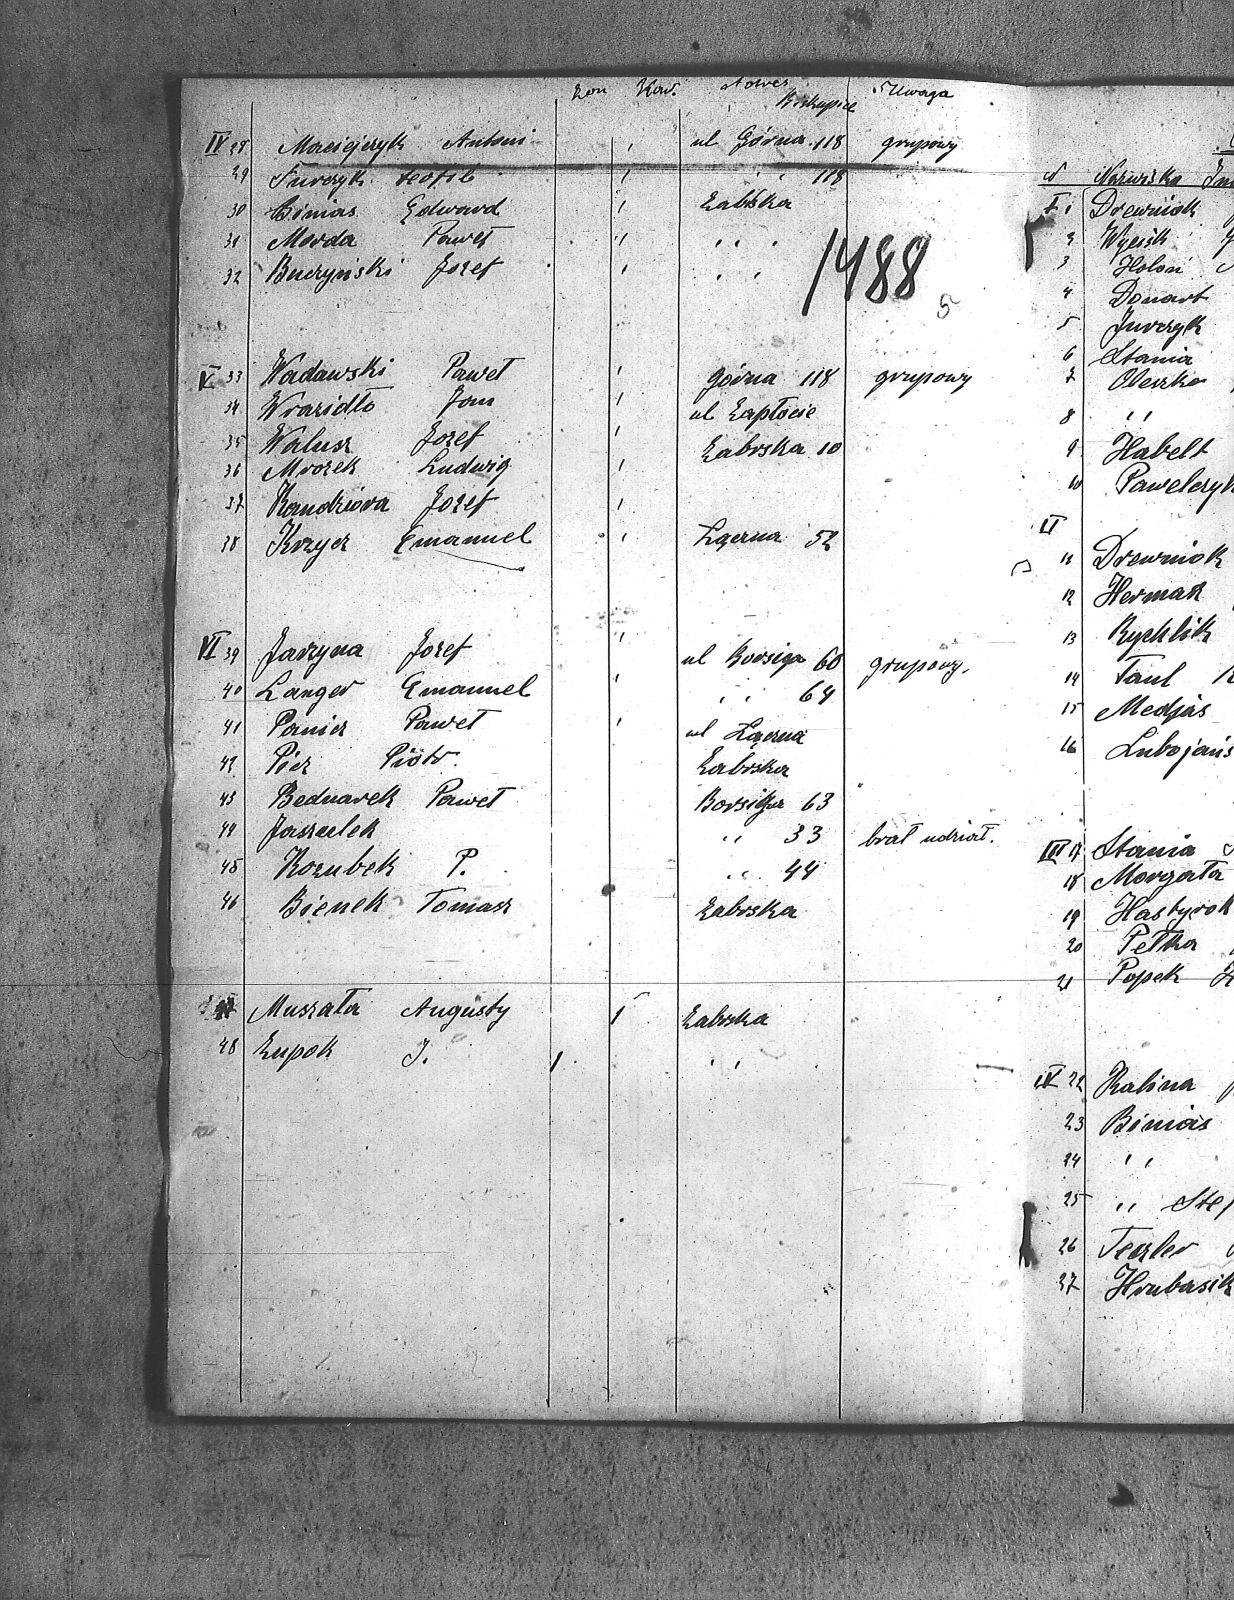 Żon Kaw. Adres Uwaga
Biskupice
IV 28 Maciejczyk Antoni ' ul Górna 118 grupowy
29 Furczyk Teofil ' " 118
30 Binias Edward ' Zabrska
31 Morda Paweł " ' ' '
32 Buczyński Jozef ' ' '
1488
5
V 33 Wadawski Paweł ' Górna 118 grupowy
34 Wrazidło Jan ' ul Zapłocie
35 Walusz Jozef ' Zabrska 10
36 Mrozek Ludwig '
37 Kandziora Jozef '
38 Krzyez Emanuel ' Łączna 52
VI 39 Jarzyna Jozef ' ul Borsiga 60 grupowy.
40 Langer Emanuel ' ' ' 64
41 Panicz Paweł ' ul Łączna
42 Piez Piotr. Zabrska
43 Bednarek Paweł Borsiga 63
44 Jaszulek " 33 brał udział.
45 Kozubek P. " 44
46 Bienek Tomasz Zabrska
47 Muszała Augusty 1 Zabrska
48 Żupok J. 1 ' '
Nazwiska
I 1 Drewniok
2 Wycisk
3 Holoń
4 Donart
5 Jurczyk
6 Stania
7 Oleszko
8 ' '
9 Habelt
10 Pawelczyk
II
11 Drewniok
12 Hermaz
13 Rychlik
14 Taul
15 Medjas
16 Lubojańs
III 17 Stania
18 Morgała
19 Hastyrok
20 Pełka
21 Popek
IV 22 Kalina
23 Binias
24 ' '
25 " Stef
26 Teszler
27 Hrubasik